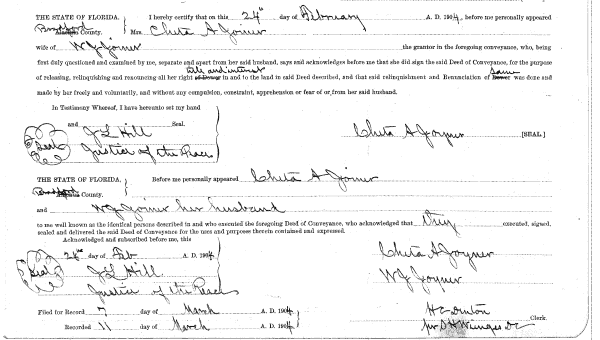 THE STATE OF FLORIDA. } I hereby certify that on this 24th day of February A. D. 1904, before me personally appeared
Bradford County. Mrs. Cheta A Joiner
wife of W J Joiner the grantor in the foregoing conveyance, who, being
first duly questioned and examined by me, separate and apart from her said husband, says and acknowledges before me that she did sign the said Deed of Conveyance, for the purpose
title and interest same
of releasing, relinquishing and renouncing all her right of Dower in and to the land in said Deed described, and that said relinquishment and Renunciation of Dower was done and
made by her freely and voluntarily, and without any compulsion, constraint, apprehension or fear of or from her said husband.
In Testimony Whereof, I have hereunto set my hand
and Seal.
Seal J L Hill Cheta A Joyner [SEAL.]
Justice of the Peace
THE STATE OF FLORIDA. } Before me personally appeared Cheta A Joiner
Bradford County.
and W J Joiner her husband
to me well known as the identical persons described in and who executed the foregoing Deed of Conveyance, who acknowledged that they executed, signed,
sealed and delivered the said Deed of Conveyance for the uses and purposes therein contained and expressed.
Acknowledged and subscribed before me, this
24th day of Feb A. D. 1904 Cheta A Joyner
Seal J L Hill W J Joyner
Justice of the Peace
Filed for Record 7 day of March A. D. 1904
Recorded 11 day of March A. D. 1904 Clerk.